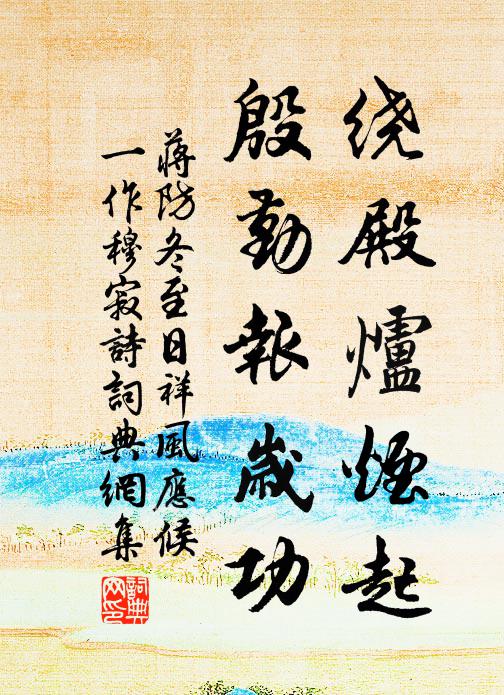 绕殿爐煙起
殷勤報歲功
蔣防冬至日祥風應候
一作穆寂詩詞典網集
詞典网印